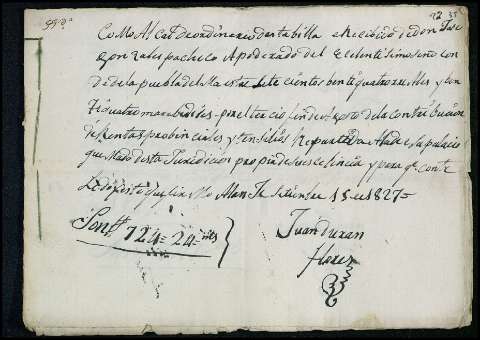 Como Alcalde ordinario desta billa e Recibido de don Jose
Gonzales pacheco Apoderado del Eselentisimo señor con
de de la puebla del Maestre sete cientos beinti quatro rr.s y bein
te i quatro marabedises por el tercio fin de Agosto de la contribucion
de Rentas probinciales y tensilios Repartida a la de el palacio
que llado desta Juridicion propia de su eselencia y para q.e conste
le doi este que firmo Setiembre 15 de 1827=
Son rr.s 724= 24 mrs
Juan duran
florez